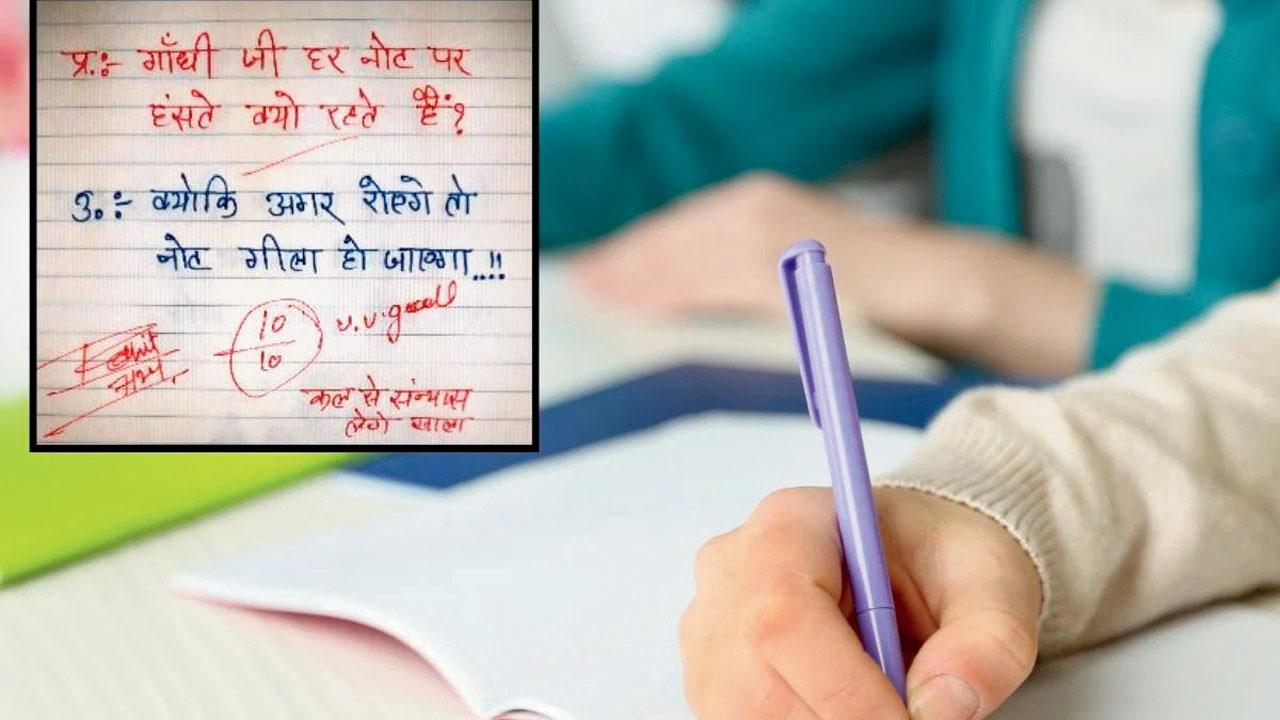 प्र.:- गाँधी जी हर नोट पर
हंसते क्यो रहते हैं?
उ.:- क्योकि अगर रोएगे तो
नोट गीला हो जाएगा...!!
10
10
v.v.good
कल से संन्यास